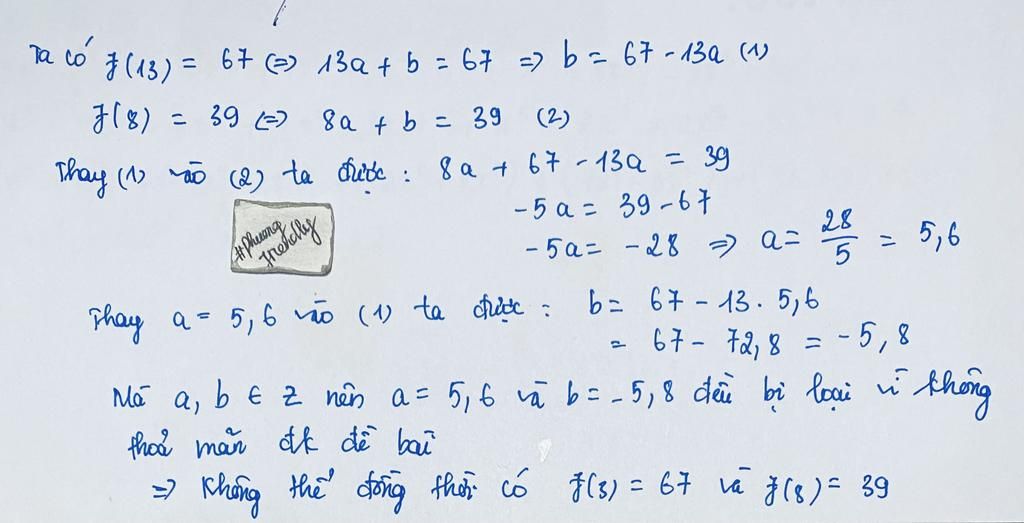 Ta có f(13) = 67 (=) 13a + b = 67 => b = 67 - 13a (1)
f(8) = 39 (=) 8a + b = 39 (2)
Thay (1) vào (2) ta được : 8a + 67 - 13a = 39
-5a = 39 - 67
-5a = -28 => a = 28/5 = 5,6
#Phuong
Thay a = 5,6 vào (1) ta được : b = 67 - 13 . 5,6
= 67 - 72,8 = -5,8
Mà a, b ∈ Z nên a = 5,6 và b = -5,8 đều bị loại vì không
thoả mãn đk đề bài
=> Không thể đồng thời có f(3) = 67 và f(8) = 39